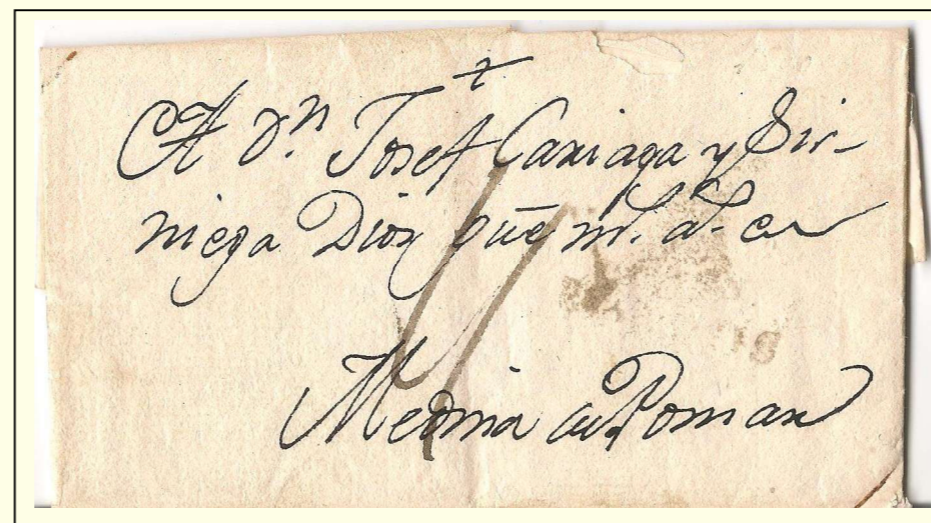 +
A Dn. Josef Cariaga y Sir-
niega Dios gūe ms. as. en
Medina de Pomar